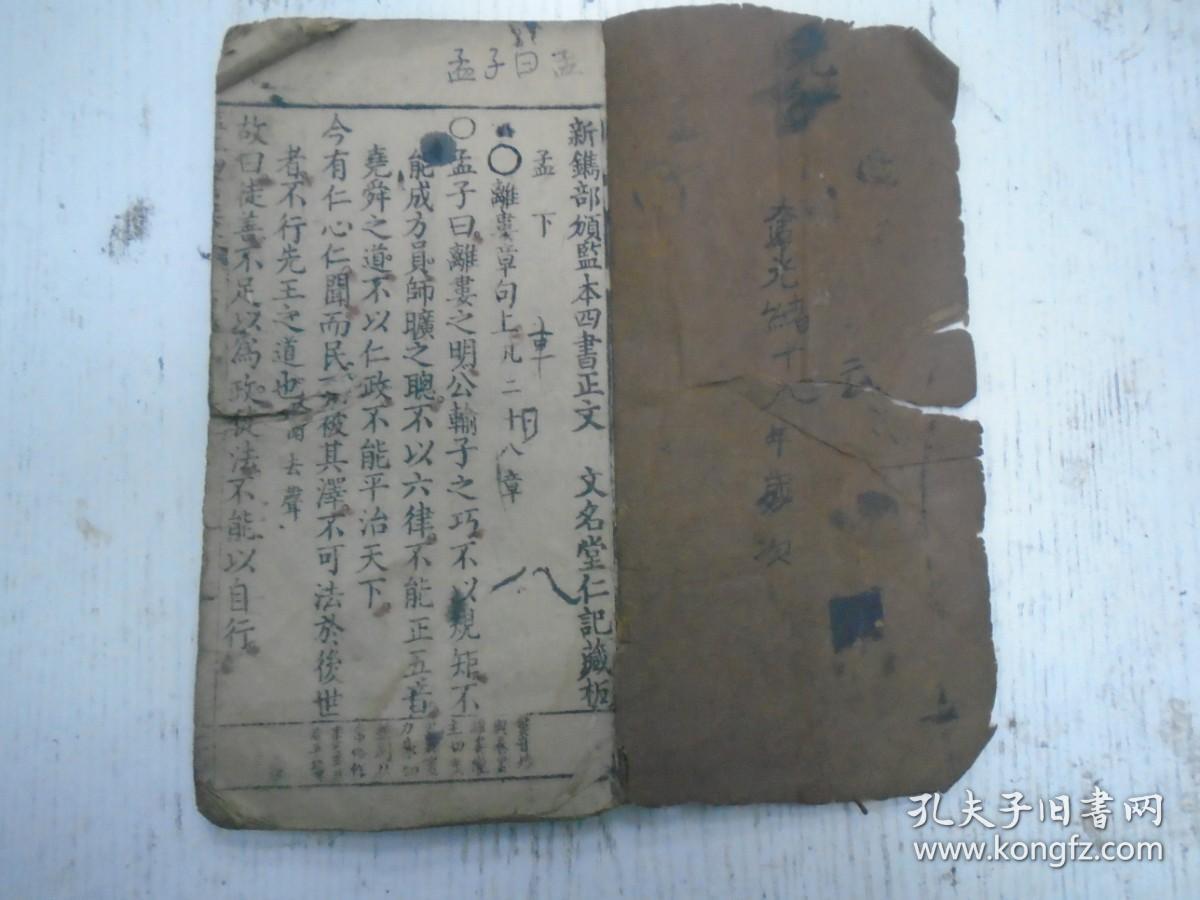 光緒十八年歲次
孟子曰孟
新鐫部頒監本四書正文 文名堂仁記藏板
孟下
離婁章句上 凡二十八章
○孟子曰離婁之明公輸子之巧不以規矩不
能成方員師曠之聰不以六律不能正五音
堯舜之道不以仁政不能平治天下
今有仁心仁聞而民不被其澤不可法於後世
者不行先王之道也 聞去聲
故曰徒善不足以為政徒法不能以自行
孔夫子旧书网
www.kongfz.com